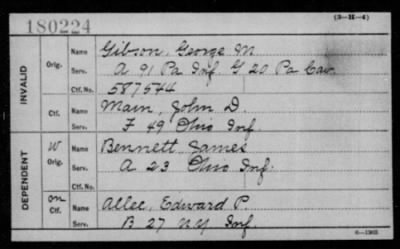 180224
(3-H-4)
INVALID
Orig.
Name Gibson, George M
Serv. A 91 Pa Inf G 20 Pa Cav.
Ctf. No. 587544
Ctf.
Name Main, John D.
Serv. F 49 Ohio Inf
DEPENDENT
W
Orig.
Name Bennett James
Serv. A 23 Ohio Inf.
Ctf. No.
on
Ctf.
Name Allec, Edward P.
Serv. B 27 N.Y Inf.